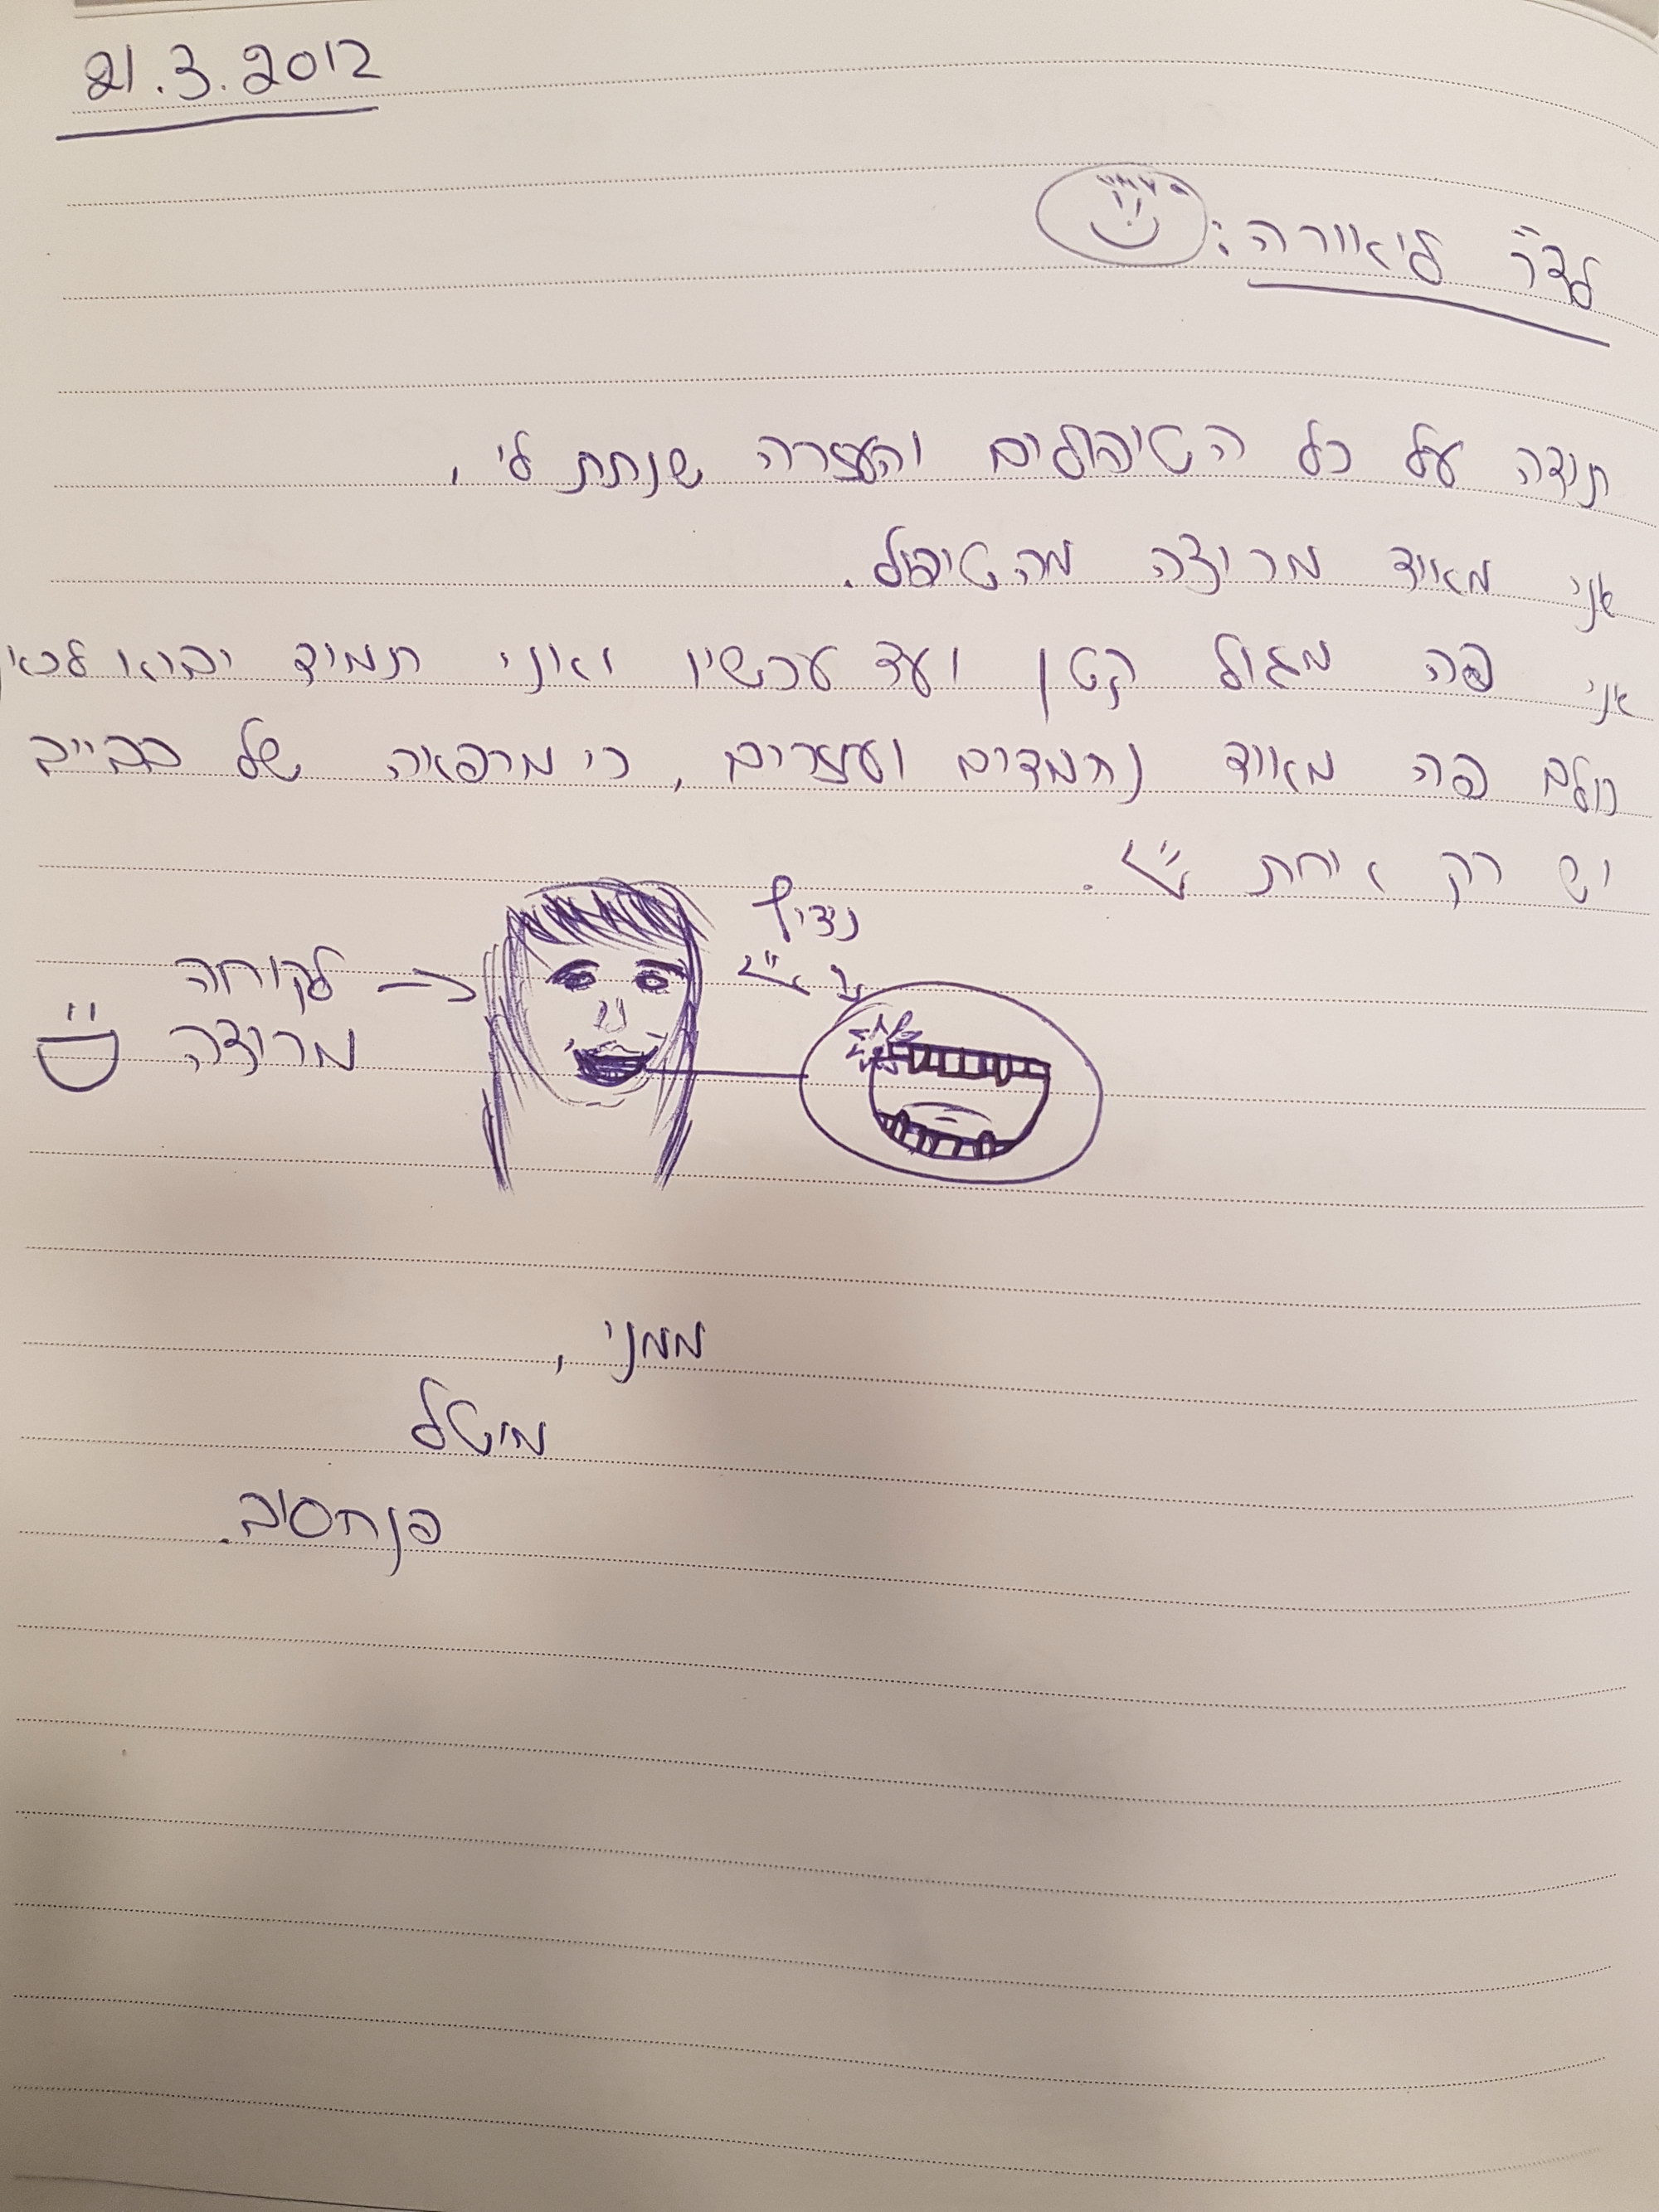 21.3.2012
לד"ר ליאורה:
תודה על כל הטיפולים והעזרה שנתת לי,
אני מאוד מרוצה מהטיפול.
אני פה מגול קטן ועד עכשיו ואני תמיד יבוא לכאן
כולם פה מאוד נחמדים ועוזרים, כי מרפאה של
יש רק אחת
לקוחה
מרוצה
ממני,
מיטל
פנחסוב.